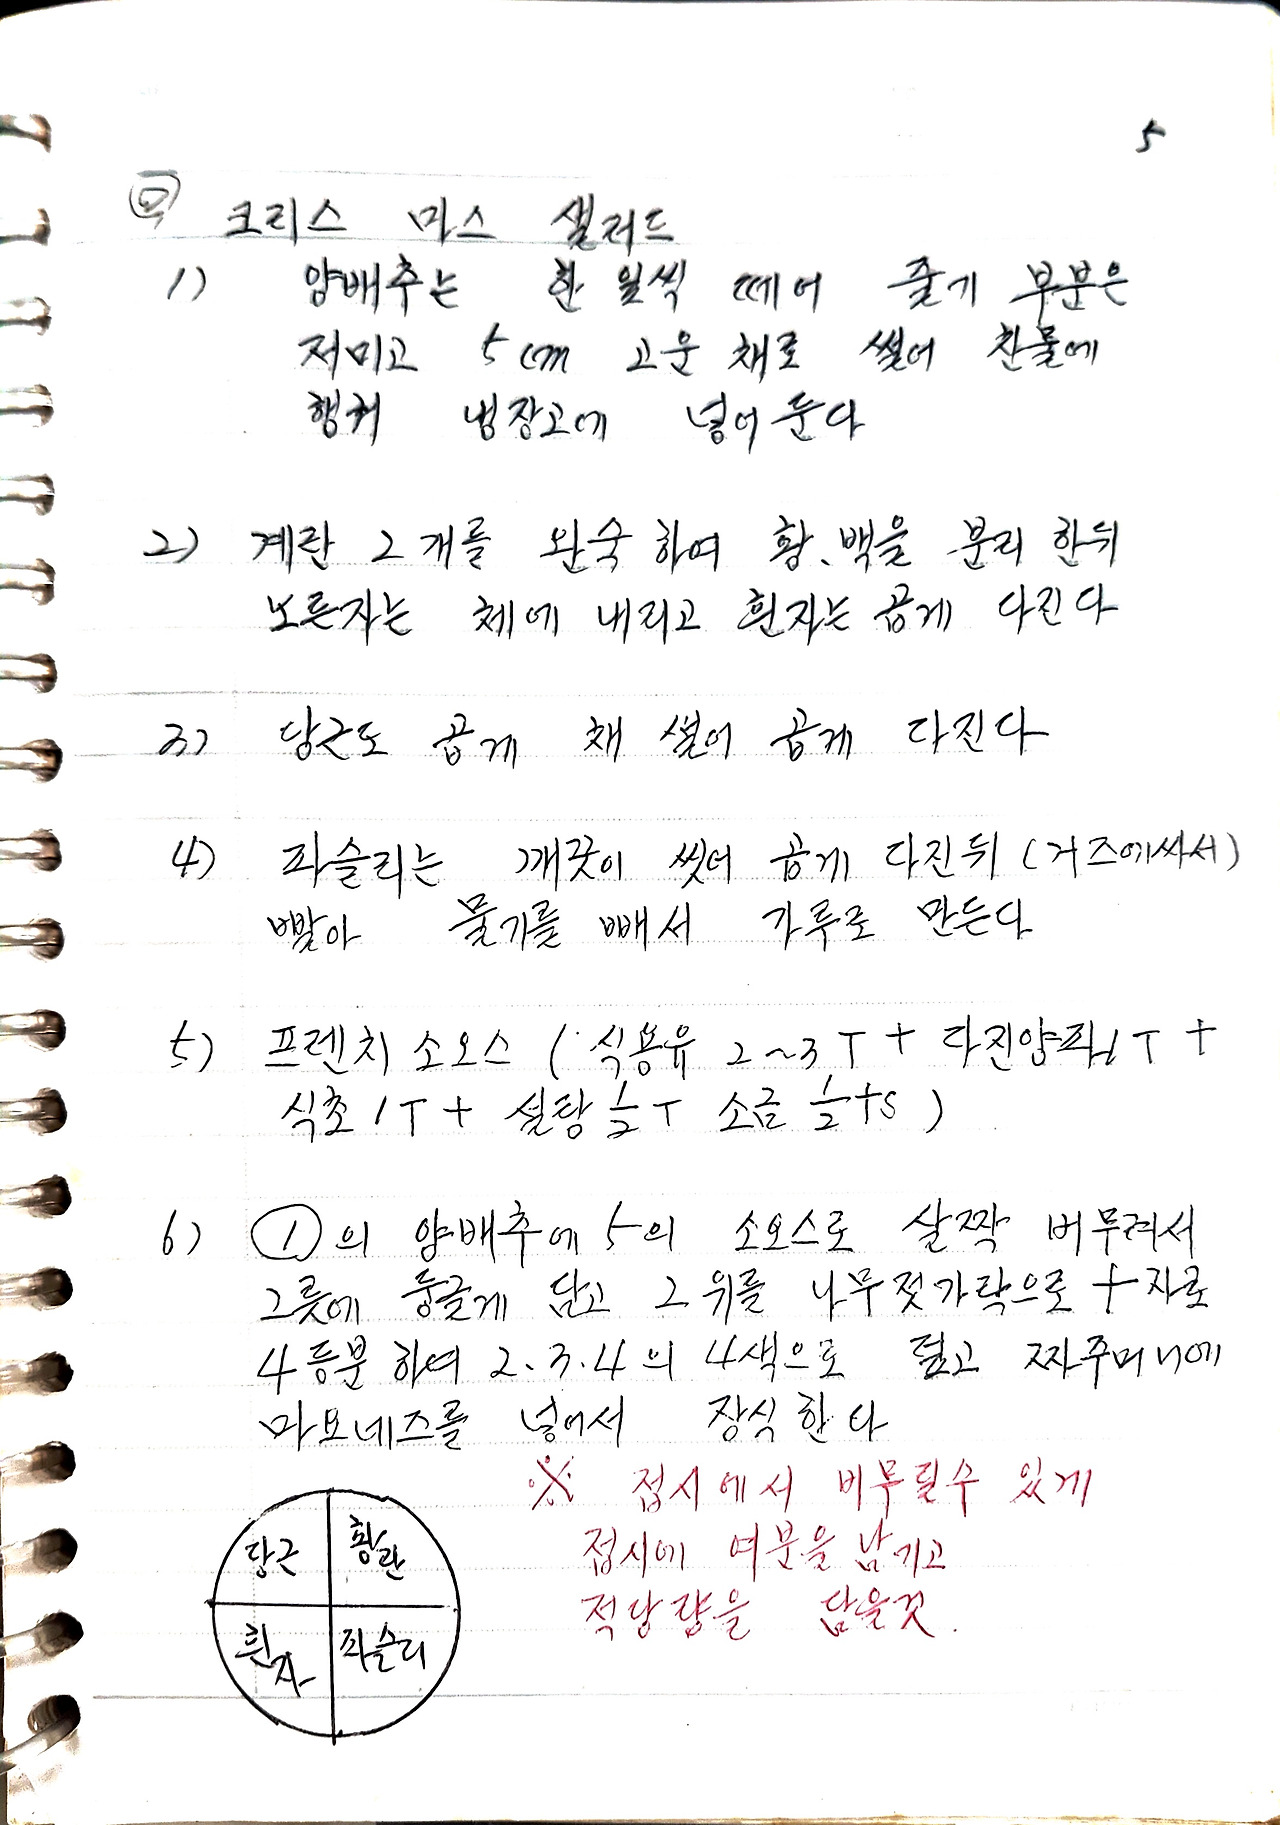 5
요 크리스 마스 샐러드
1) 양배추는 한 잎씩 떼어 줄기 부분은
저미고 5cm 고운 채로 썰어 찬물에
헹궈 냉장고에 넣어둔다
2) 계란 2개를 완숙하여 황.백을 분리 한뒤
노른자는 체에 내리고 흰자는 곱게 다진다
3) 당근도 곱게 채 썰어 곱게 다진다
4) 파슬리는 깨끗이 씻어 곱게 다진뒤 (거즈에싸서)
빨아 물기를 빼서 가루로 만든다
5) 프렌치 소오스 ( 식용유 2~3T + 다진양파1T +
식초1T + 설탕 1/2T 소금 1/2ts )
6) ①의 양배추에 5의 소오스로 살짝 버무려서
그릇에 둥글게 담고 그 위를 나무젓가락으로 十자로
4등분 하여 2.3.4의 4색으로 덮고 짜주머니에
마요네즈를 넣어서 장식한다
※ 접시에서 버무릴수 있게
접시에 여분을 남기고
적당량을 담을것.
당근 황란
흰자 파슬리